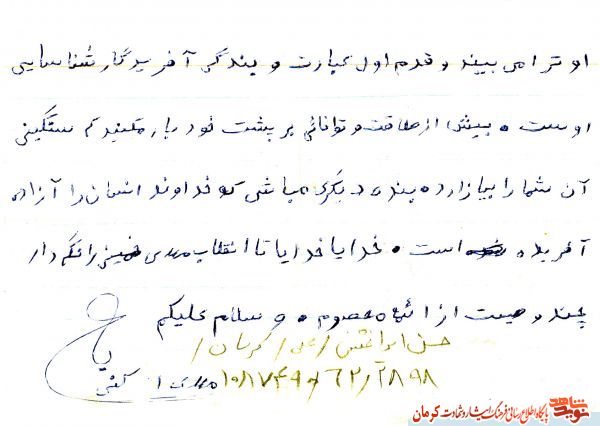 او ترا می بیند و قدم اول عبارت و بندگی آفریدگار شناسایی
اوست ه بیش از طاقت و توانائی بر پشت خود بار مکنید که سنگینی
آن شما را بیازارد ه بنده دیگری مباش که خداوند انسان را آزاده
آفریده است ه خدایا خدایا تا انقلاب مهدی خمینی را نگهدار
چند وصیت از ائمه معصوم ه و سلام علیکم
کرمان
نوید شاهد
پایگاه اطلاع رسانی فرهنگ ایثار و شهادت کرمان